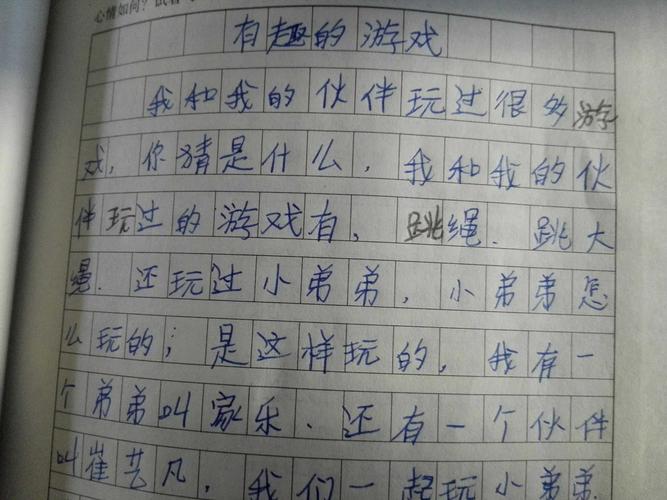 心情如何？试着
有趣的游戏
我和我的伙伴玩过很多游
戏，你猜是什么，我和我的伙
伴玩过的游戏有，跳绳．跳大
绳．还玩过小弟弟，小弟弟怎
么玩的；是这样玩的，我有一
个弟弟叫家乐．还有一个伙伴
叫崔艺凡，我们一起玩小弟弟